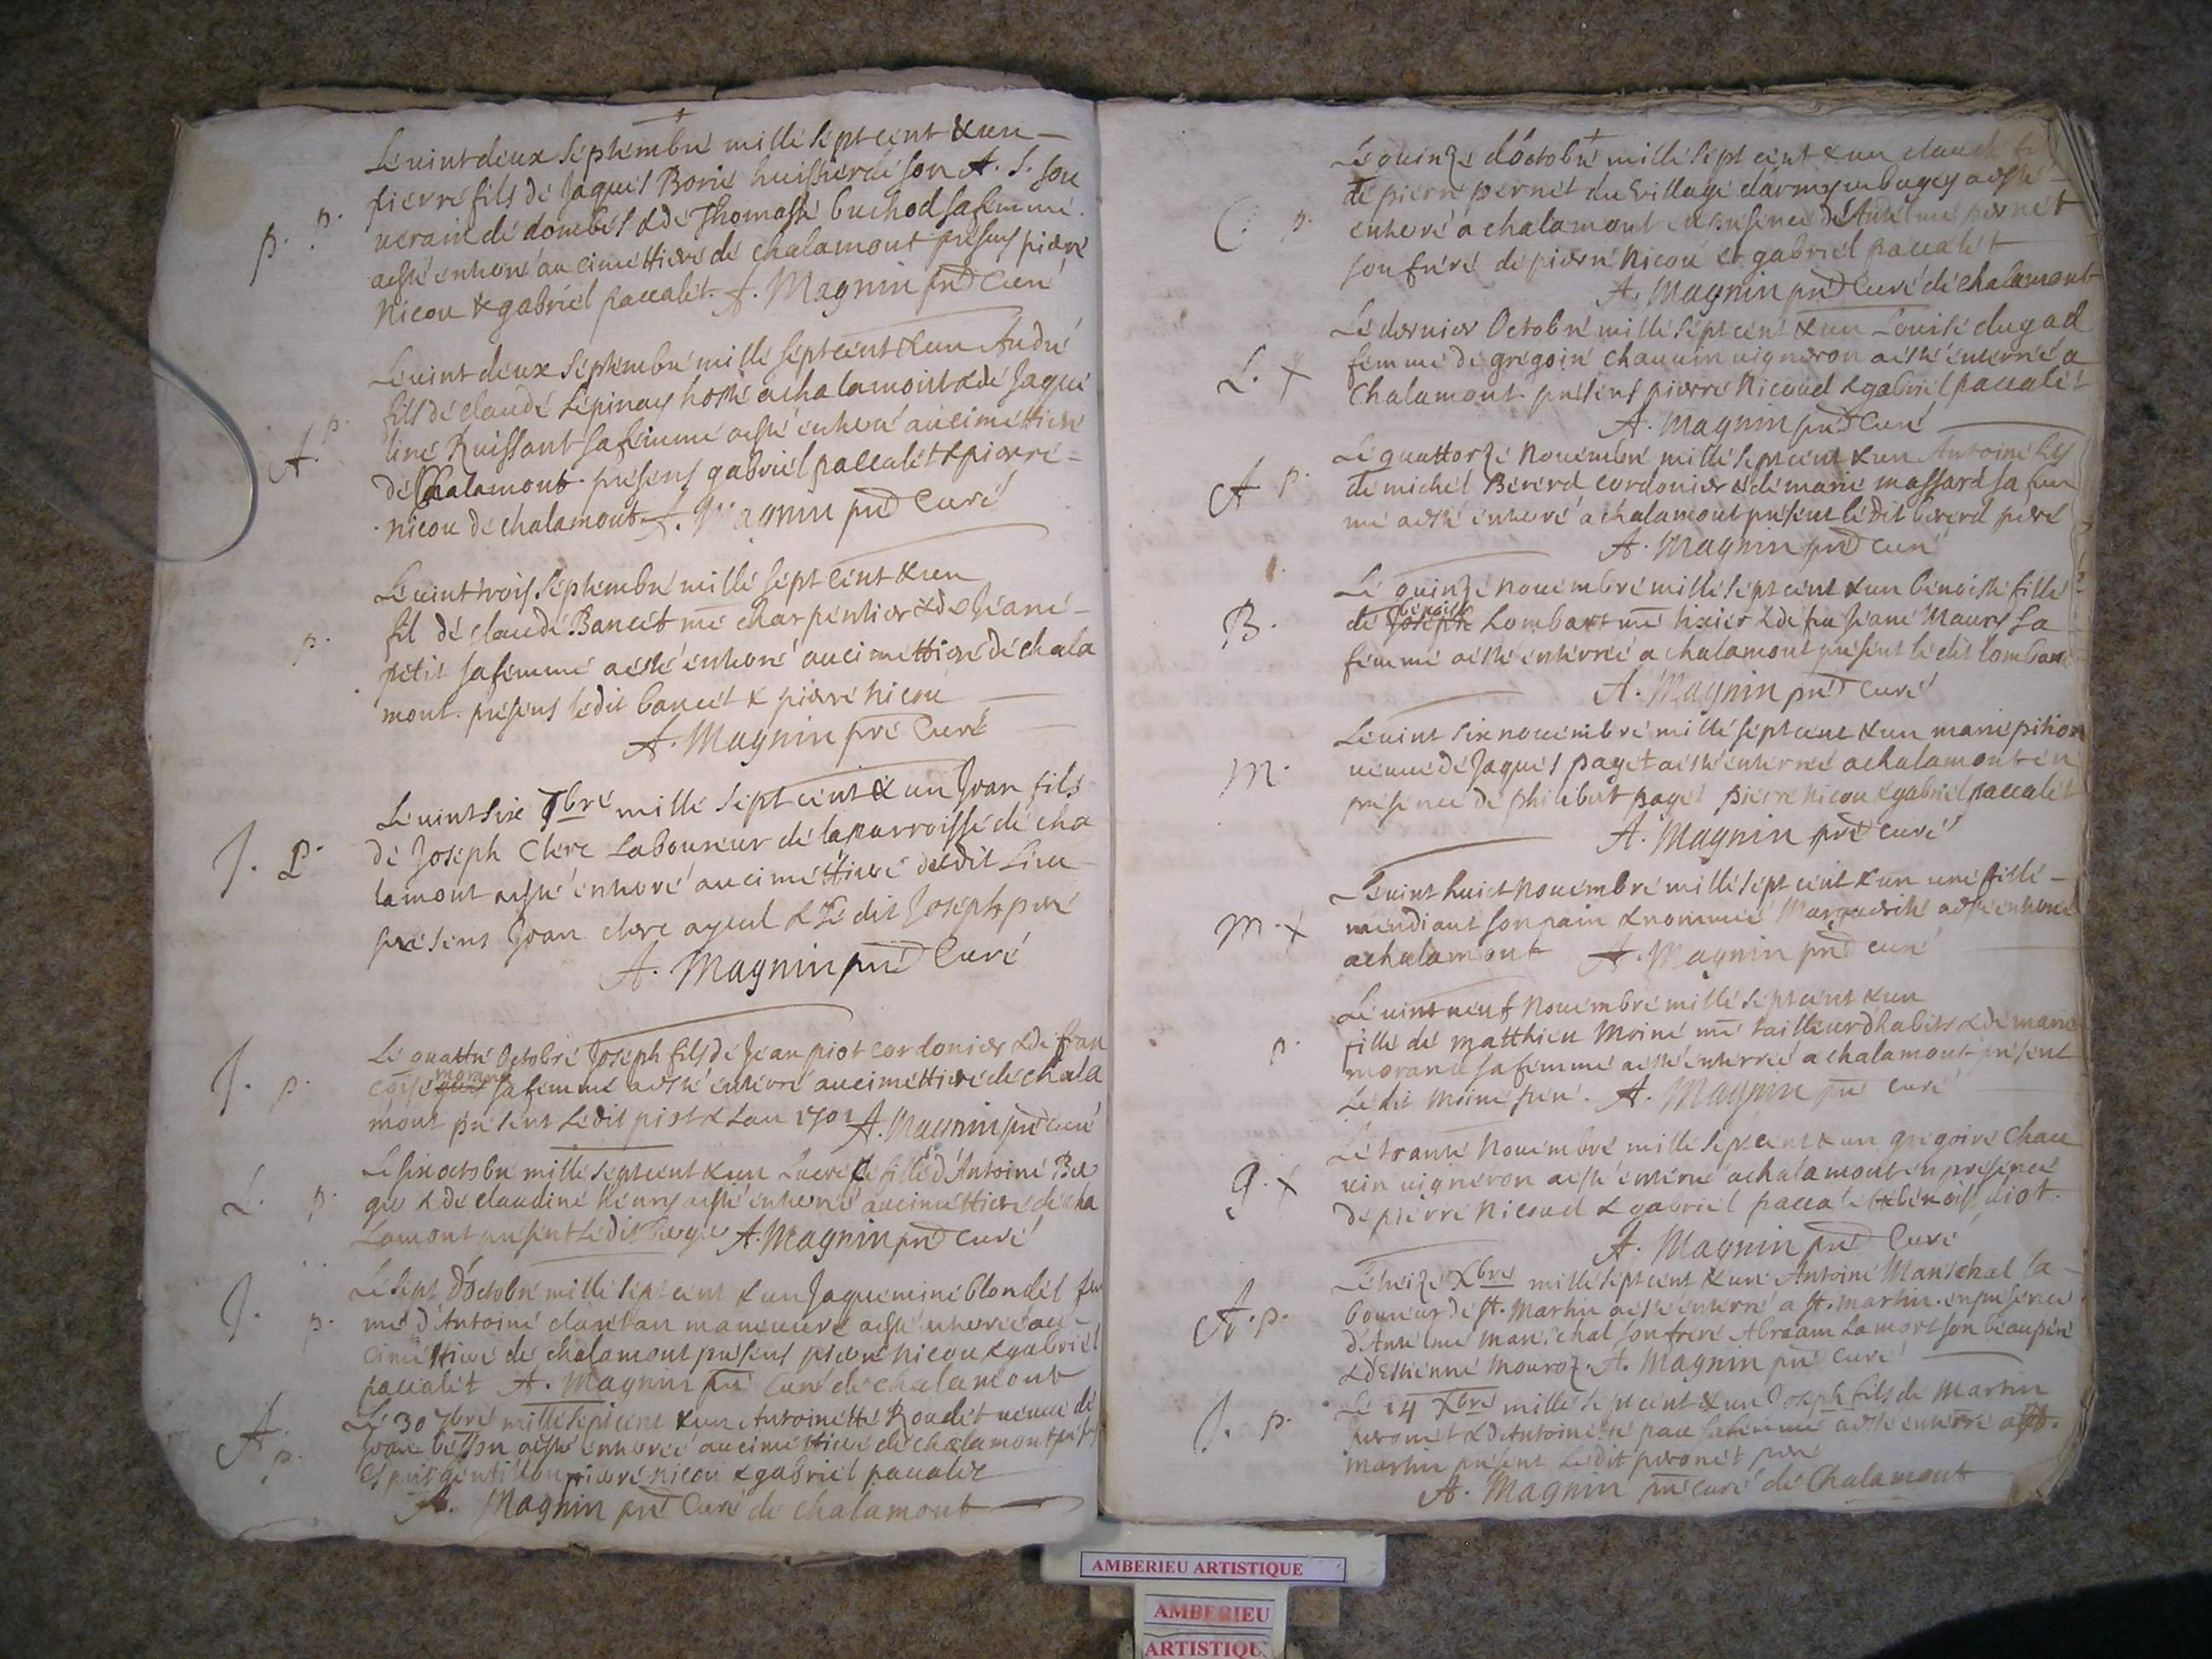 Le vint deux septembre mille sept cent & un
p. p. pierre fils de Jaques Borie huissier de son A. S. sou
veraine de dombes & de Thomasse buchod sa femme
a esté enterré au cimettiere de chalamont presens pierre
Nicou & gabriel paccalet. A. Magnin pre Curé
Le vint deux septembre mille sept cent & un André
A. p. fils de claude Lépinay hoste a chalamont & de Jaque
line Ruissant sa femme a esté enterré au cimettiere
de Chalamont. presens gabriel paccalet & pierre
nicou de chalamont A. Magnin pre Curé
Le vint trois septembre mille sept cent & un
p. fil de claude Bancet me charpentier & de Jeane
petit sa femme a esté enterré au cimettiere de chala
mont. presens ledit bancet & pierre nicou
A. Magnin pre Curé
Le vint six 7bre mille sept cent & un Jean fils
J. P. de Joseph Clerc Laboureur de la parroisse de cha
lamont a esté enterré au cimettiere dudit Lieu
presens Jean clerc ayeul & le dit Joseph pere
A. Magnin pre Curé
Le quattre Octobre Joseph fils de Jean piot cordonier & de fran
J. p. coise morand sa femme a esté enterré au cimettiere de chala
mont present Ledit piot & Lan 1701 A. Magnin pre curé
Le six octobre mille sept cent & un Lucrece fille d'Antoine Ber
L. p. ger & de claudine henry a esté enterrée au cimettiere de cha
Lamont present Ledit Berger A. Magnin pre Curé
Le sept d'octobre mille sept cent & un Jaquemine blondel fem
J. p. me d'Antoine manouvre a esté enterrée au
cimettiere de chalamont presens pierre nicou & gabriel
paccalet A. Magnin pre Curé de chalamont
Le 30 7bre mille sept cent & un Antoinette Roudet veuve de
A. p. Jean besson a esté enterrée au cimettiere de chalamont
pierre nicou & gabriel paccalet
A. Magnin pre Curé de chalamont
Le quinze d'octobre mille sept cent & un claude
C. p. de pierre pernet du village en bugey a esté
enterré a chalamont en presence de Antelme pernet
son frere de pierre Nicou et gabriel paccalet
A. Magnin pre Curé de chalamont
Le dernier Octobre mille sept cent & un Louise dugad
L. x femme de gregoire chauvin vigneron a esté enterrée a
Chalamont. presens pierre Nicoud & gabriel paccalet
A. Magnin pre Curé
Le quattorze Novembre mille sept cent & un Antoine fils
A p. de michel Bererd cordonier & de marie massard sa fem
me a esté enterré a chalamont present le dit bererd pere
A. Magnin pre curé
Le quinze novembre mille sept cent & un benoiste fille
B. de benoist Lombart me tixier & de fu Jeane Maury sa
femme a esté enterrée a chalamont present le dit lombart
A. Magnin pre Curé
Le vint six novembre mille sept cent & un marie pition
M. veuve de Jaques paget a esté enterrée a chalamont en
presence de philibert paget pierre nicou & gabriel paccalet
A. Magnin pre curé
Le vint huict novembre mille sept cent & un une fille
M. x mendiant son pain & nommée Marguerite a esté enterrée
a chalamont A. Magnin pre curé
Le vint neuf Novembre mille sept cent & un
p. fille de matthieu Moine me tailleur dhabits & de marie
morand sa femme a esté enterrée a chalamont present
Le dit moine pere. A. Magnin pre curé
Le trante Novembre mille sept cent & un gregoire Chau
g. x vin vigneron a esté enterré a chalamont en presence
de pierre nicoud & gabriel paccalet & benoist diot.
A. Magnin pre Curé
Le treize Xbre mille sept cent & un Antoine Mareschal la
A. p. boureur de st. martin a esté enterré a st. martin. en presence
d'Antelme mareschal son frere Abraam Lamort son beaupere
& d'Estienne mouroz. A. Magnin pre Curé
Le 14 Xbre mille sept cent & un Joseph fils de Martin
J. p. peronet & d'Antoinette sa femme a esté enterré a st.
martin present Ledit peronet pere
A. Magnin pre curé de Chalamont
AMBERIEU ARTISTIQUE
AMBERIEU
ARTISTIQU